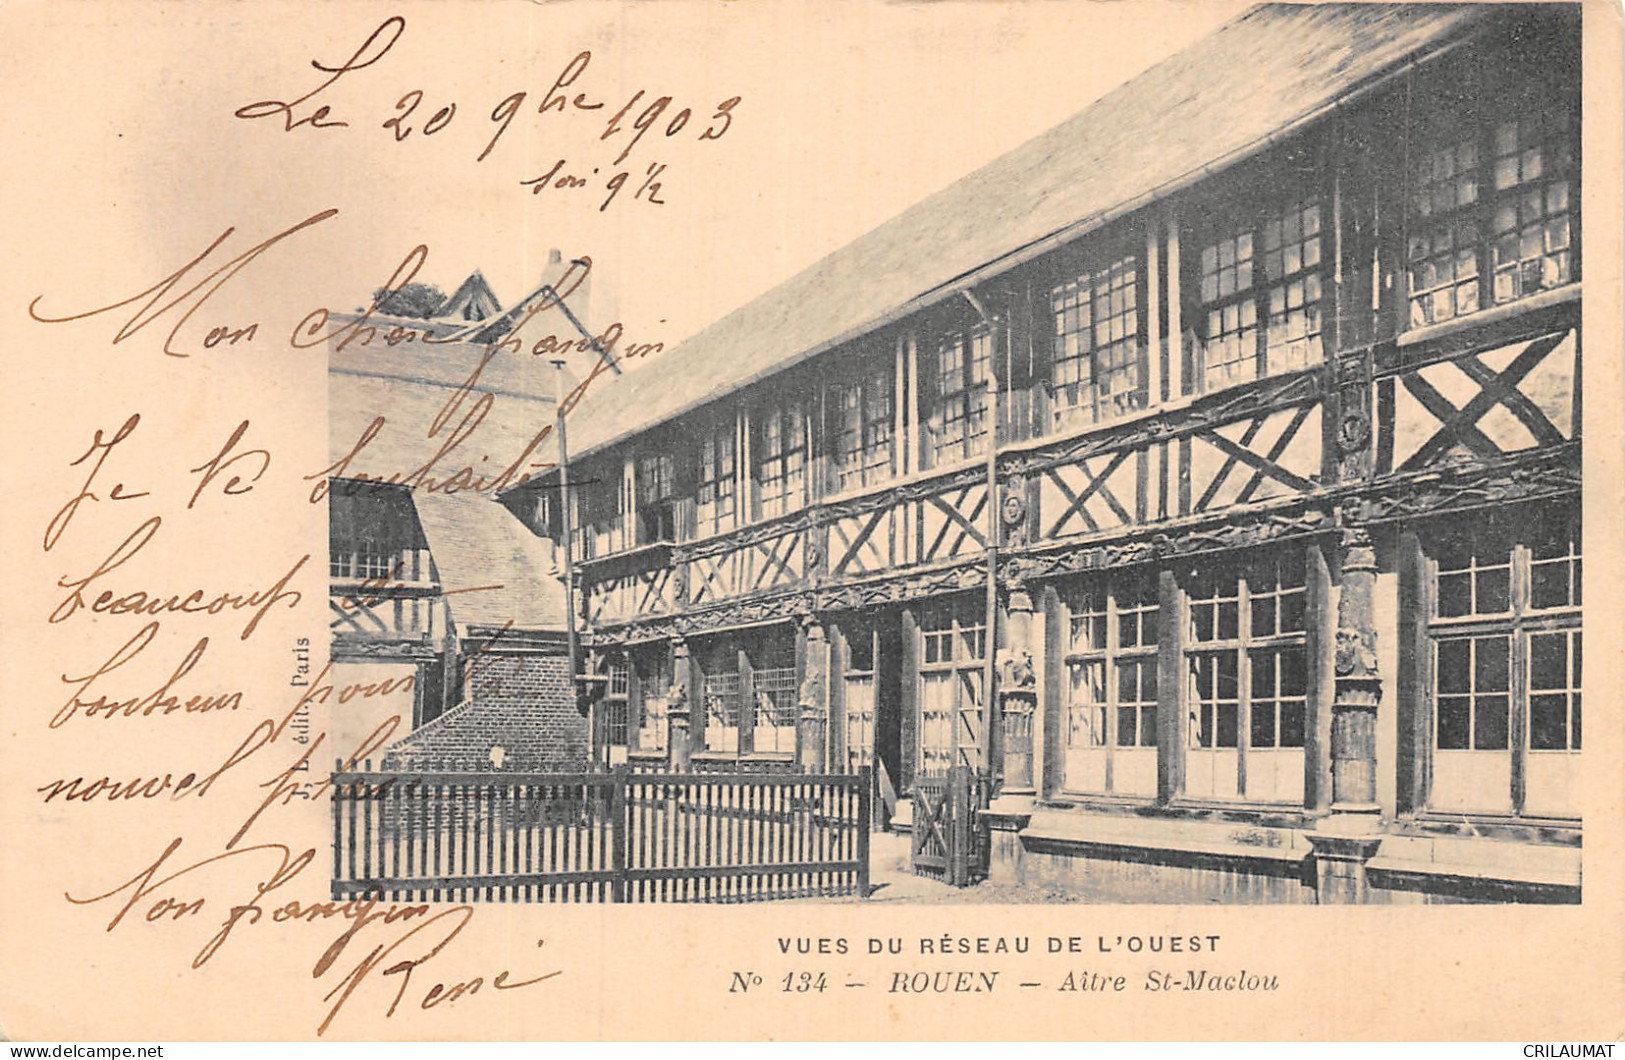 Le 20 9bre 1903
soir 9 1/2
Mon cher frangin
Je te souhaite
beaucoup de
bonheur pour ta
nouvel place
Ton frangin
René
J. L. édit., Paris
VUES DU RÉSEAU DE L'OUEST
No 134 — ROUEN — Aître St-Maclou
https://www.delcampe.net
CRILAUMAT